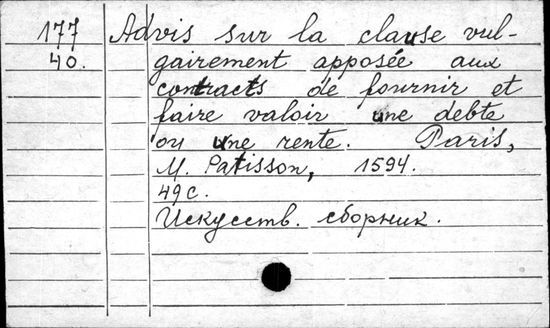 177 Advis sur la clause vul-
40. gairement apposée aux
contracts de fournir et
faire valoir une debte
ou une rente. Paris,
M. Patisson, 1594.
49 с.
Искусств. сборник.